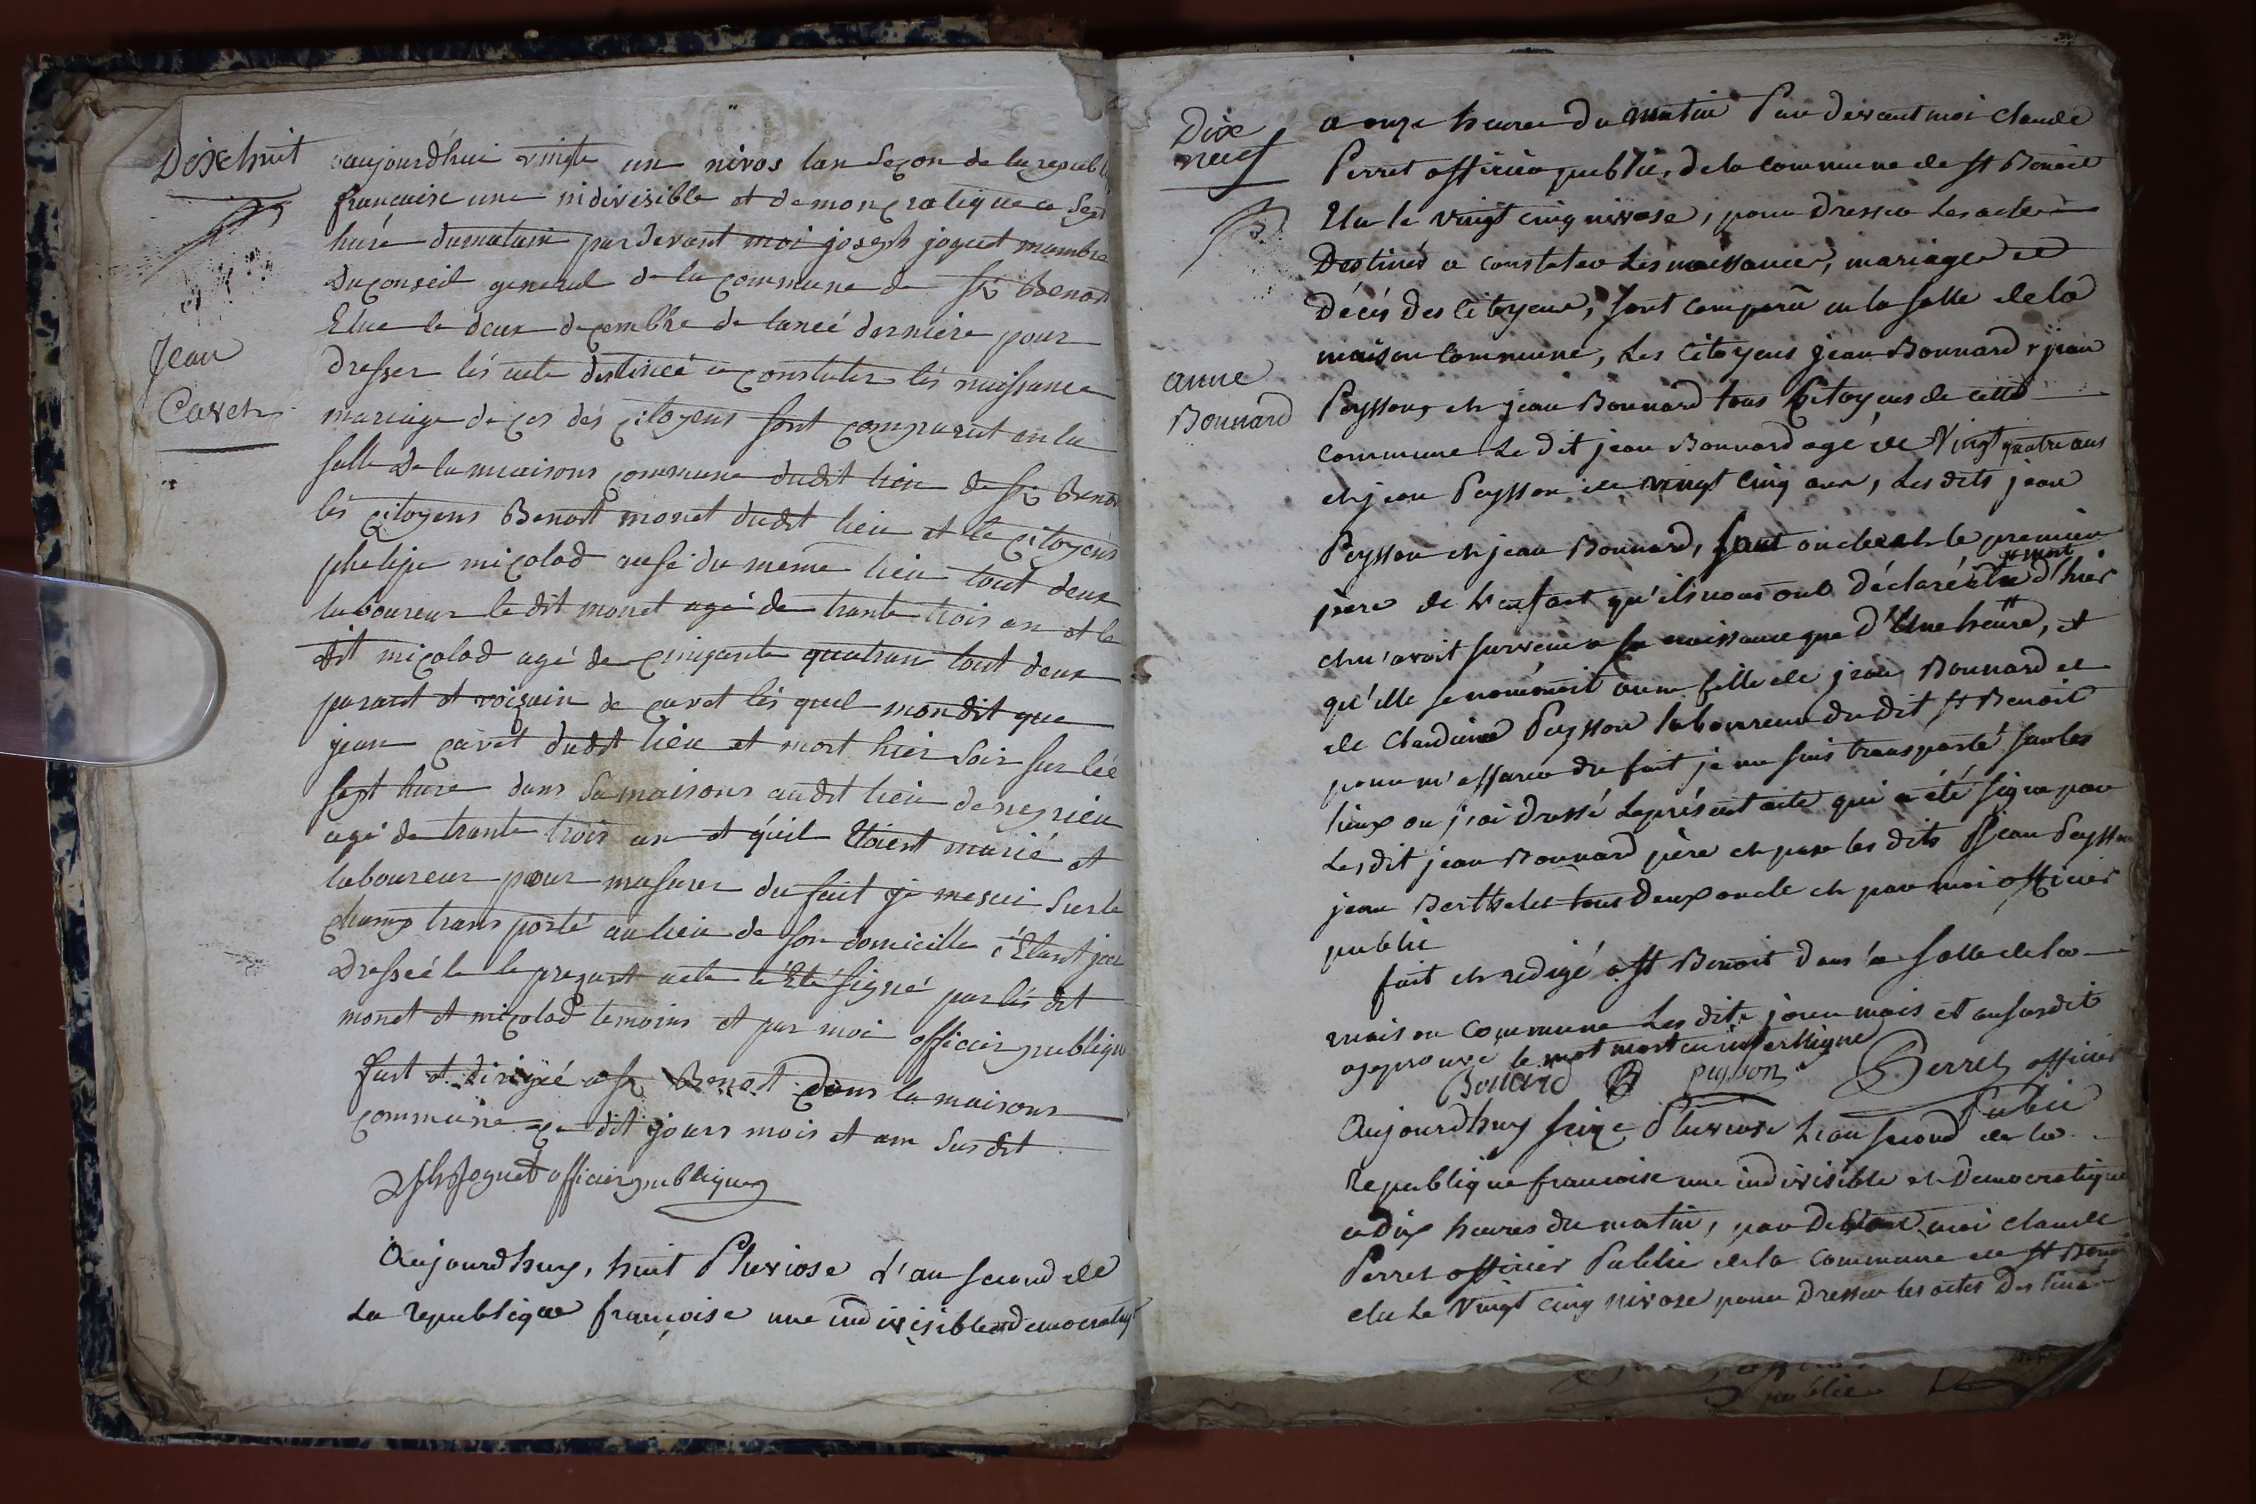 Dixehuit
Jean
Cavet
aujourdhui vingte un nivos lan segon de la republi
francaise une indivisible et demongratique a sept
huré dumatain pardevant moi joseph joguet mambre
du conseil general de la commune de st Benoit
Elue le deux decembre de laneé derniere pour
dresser lés acte destineé a constater lés naissance
mariage deces dés citoyens sont comparut en la
salle de la maisons commune dudit lieu de st Benoi
lés citoyens Benoit monet dudit lieu et le citoyens
phelipe micolod ausi du meme lieu tout deux
laboureur le dit monet agé de trante trois an et le
dit micolod agé de cinqante quatran tout deux
parant et voizain de cavet lés quel mon dit que
jean cavet dudit lieu et mort hier soir sur leé
sept hure dans sa maisons audit lieu de neyrieu
agé de trante trois an et quil Etoient marié et
laboureur pour masurer du fait je me sui surle
champ trans porté au lieu de son domicille
Dresseé le le prezant acte signé par lés dit
monet et micolod temoins et par moi officier publique
fait et dirigeé a st Benoit dans la maisons
commune ce dit jours mois et an sus dit
Jph Joguet officier publique
Aujourdhuy, huit Pluviose l'an second de
la republique françoise une indivisible democratiq
Dixe
neuf
anne
Bonnard
a onze heures du matin Par devant moi Claude
Perret officier public, de la commune de st Benoit
Elu le vingt cinq nivose, pour dresser les actes
Destinés a constater les naissances, mariages et
décés des Citoyens, sont comparu en la salle de la
maison commune, les Citoyens jean Bonnard jean
Peysson, et jean Bonnard tous Citoyens de cette
commune le dit jean Bonnard agé de vingt quatre ans
et jean Peysson de vingt cinq ans, les dits jean
Peysson et jean Bonnard, sont oncle et le premier
# mort
père de l'enfant qu'ils nous ont déclaré etre d'hier
et n'avoit survécu a sa naissance que d'Une heure, et
qu'elle se nommoit anne fille de jean Bonnard et
de Claudine Peysson laboureur du dit st Benoit
pour m'assurer du fait je me suis transporté sur les
lieux ou j'ai dressé le présent acte qui a été signé par
les dit jean Bonnard père et par les dits Jean Peysson
jean Berthelet tous deux oncle et par moi officier
public
fait et redigé a st Benoit dans la salle de la
maison commune les dits jour mois et an susdit
approuvé le mot mort en interligne
Bonard peysson Perret officier
Public
Aujourdhuy seize Pluviose l'an second de la
Republique francoise une indivisible et Democratique
a dix heures du matin, par Devant moi Claude
Perret officier Public de la commune de st Benoi
elu le vingt cinq nivose pour dresser les actes destinés
public